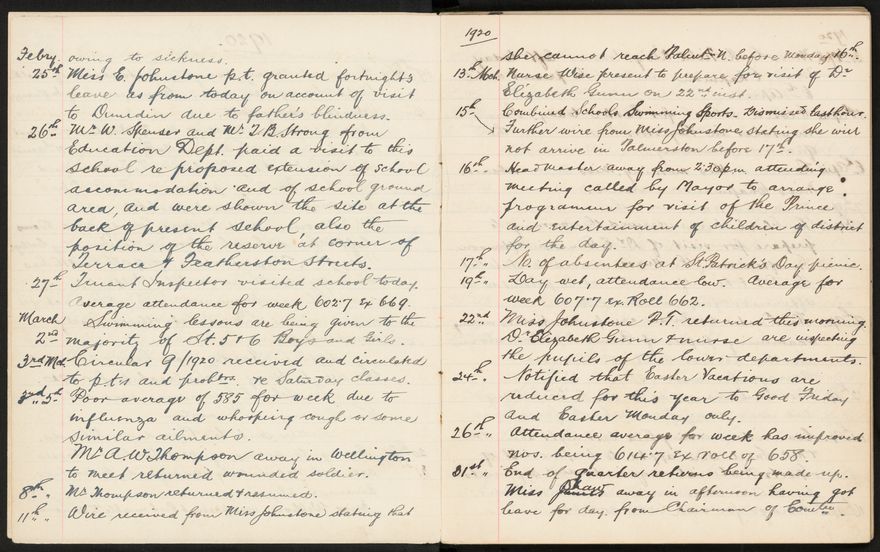 Febry. owing to sickness.
25th Miss E. Johnstone p.t. granted fortnight's
leave as from today on account of visit
to Dunedin due to father's blindness.
26th Mr. W. Spenser and Mr. T. B. Strong from
Education Dept. paid a visit to this
school re proposed extension of school
accommodation and of school ground
area, and were shown the site at the
back of present school, also the
position of the reserve at corner of
Terrace & Featherston Streets.
27th Truant Inspector visited school today.
Average attendance for week 602.7 Ex 669.
March Swimming lessons are being given to the
2nd majority of St. 5 & 6 Boys and Girls.
3rd Mch. Circular 9/1920 received and circulated
to p.t's and probtrs. re Saturday classes.
5th Poor average of 585 for week due to
influenza and whooping cough or some
similar ailments.
Mr A. W. Thompson away in Wellington
to meet returned wounded soldier.
8th " Mr Thompson returned & resumed.
11th " Wire received from Miss Johnstone stating that
1920
she cannot reach Palmt. N. before Monday 16th.
13th Mch. Nurse Wise present to prepare for visit of Dr
Elizabeth Gunn on 22nd inst.
15th Combined Schools Swimming Sports. Dismissed last hour.
Further wire from Miss Johnstone stating she will
not arrive in Palmerston before 17th.
16th " Head Master away from 2.30 p.m. attending
meeting called by Mayor to arrange
programme for visit of the Prince
and entertainment of children of district
for the day.
17th " No. of absentees at St. Patrick's Day picnic.
19th " Day wet, attendance low. Average for
week 607.7 ex. Roll 662.
22nd Miss Johnstone P.T. returned this morning.
Dr. Elizabeth Gunn & nurse are inspecting
the pupils of the lower departments.
24th " Notified that Easter Vacations are
reduced for this year to Good Friday
and Easter Monday only.
26th " Attendance average for week has improved
nos. being 614.7 Ex roll of 658.
31st " End of quarter returns being made up.
Miss Shaw away in afternoon having got
leave for day from Chairman of Comtee.